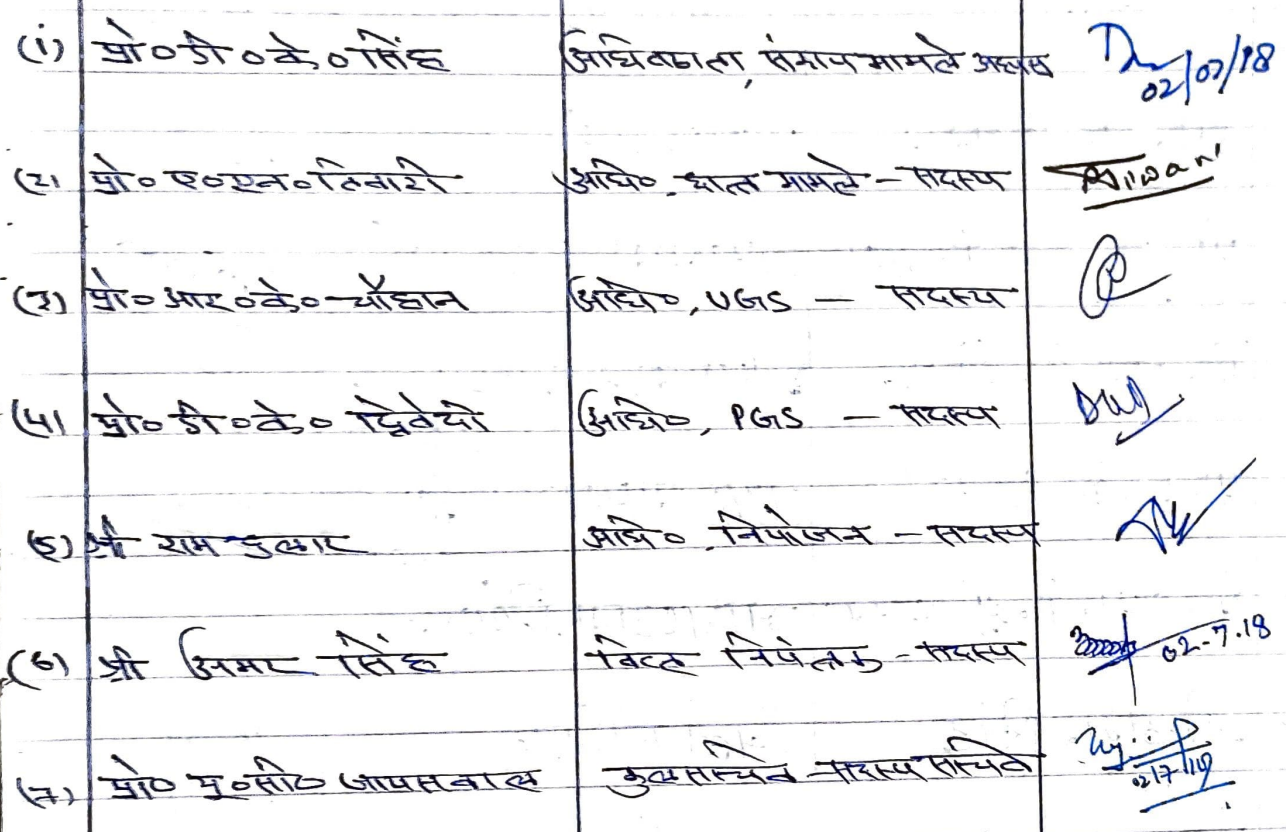 (i) प्रो० डी० के० सिंह अधिष्ठाता, संकाय मामले अध्यक्ष 02/07/18
(2) प्रो० ए० एन० तिवारी अधि०, छात्र मामले – सदस्य Tiwari
(3) प्रो० आर० के० चौहान अधि०, UGS – सदस्य
(4) प्रो० डी० के० द्विवेदी अधि०, PGS – सदस्य
(5) श्री राम कुमार अधि०, नियोजन – सदस्य
(6) श्री अमर सिंह वित्त नियंत्रक – सदस्य 02-7.18
(7) प्रो० यू० सी० जायसवाल कुलसचिव – सदस्य सचिव